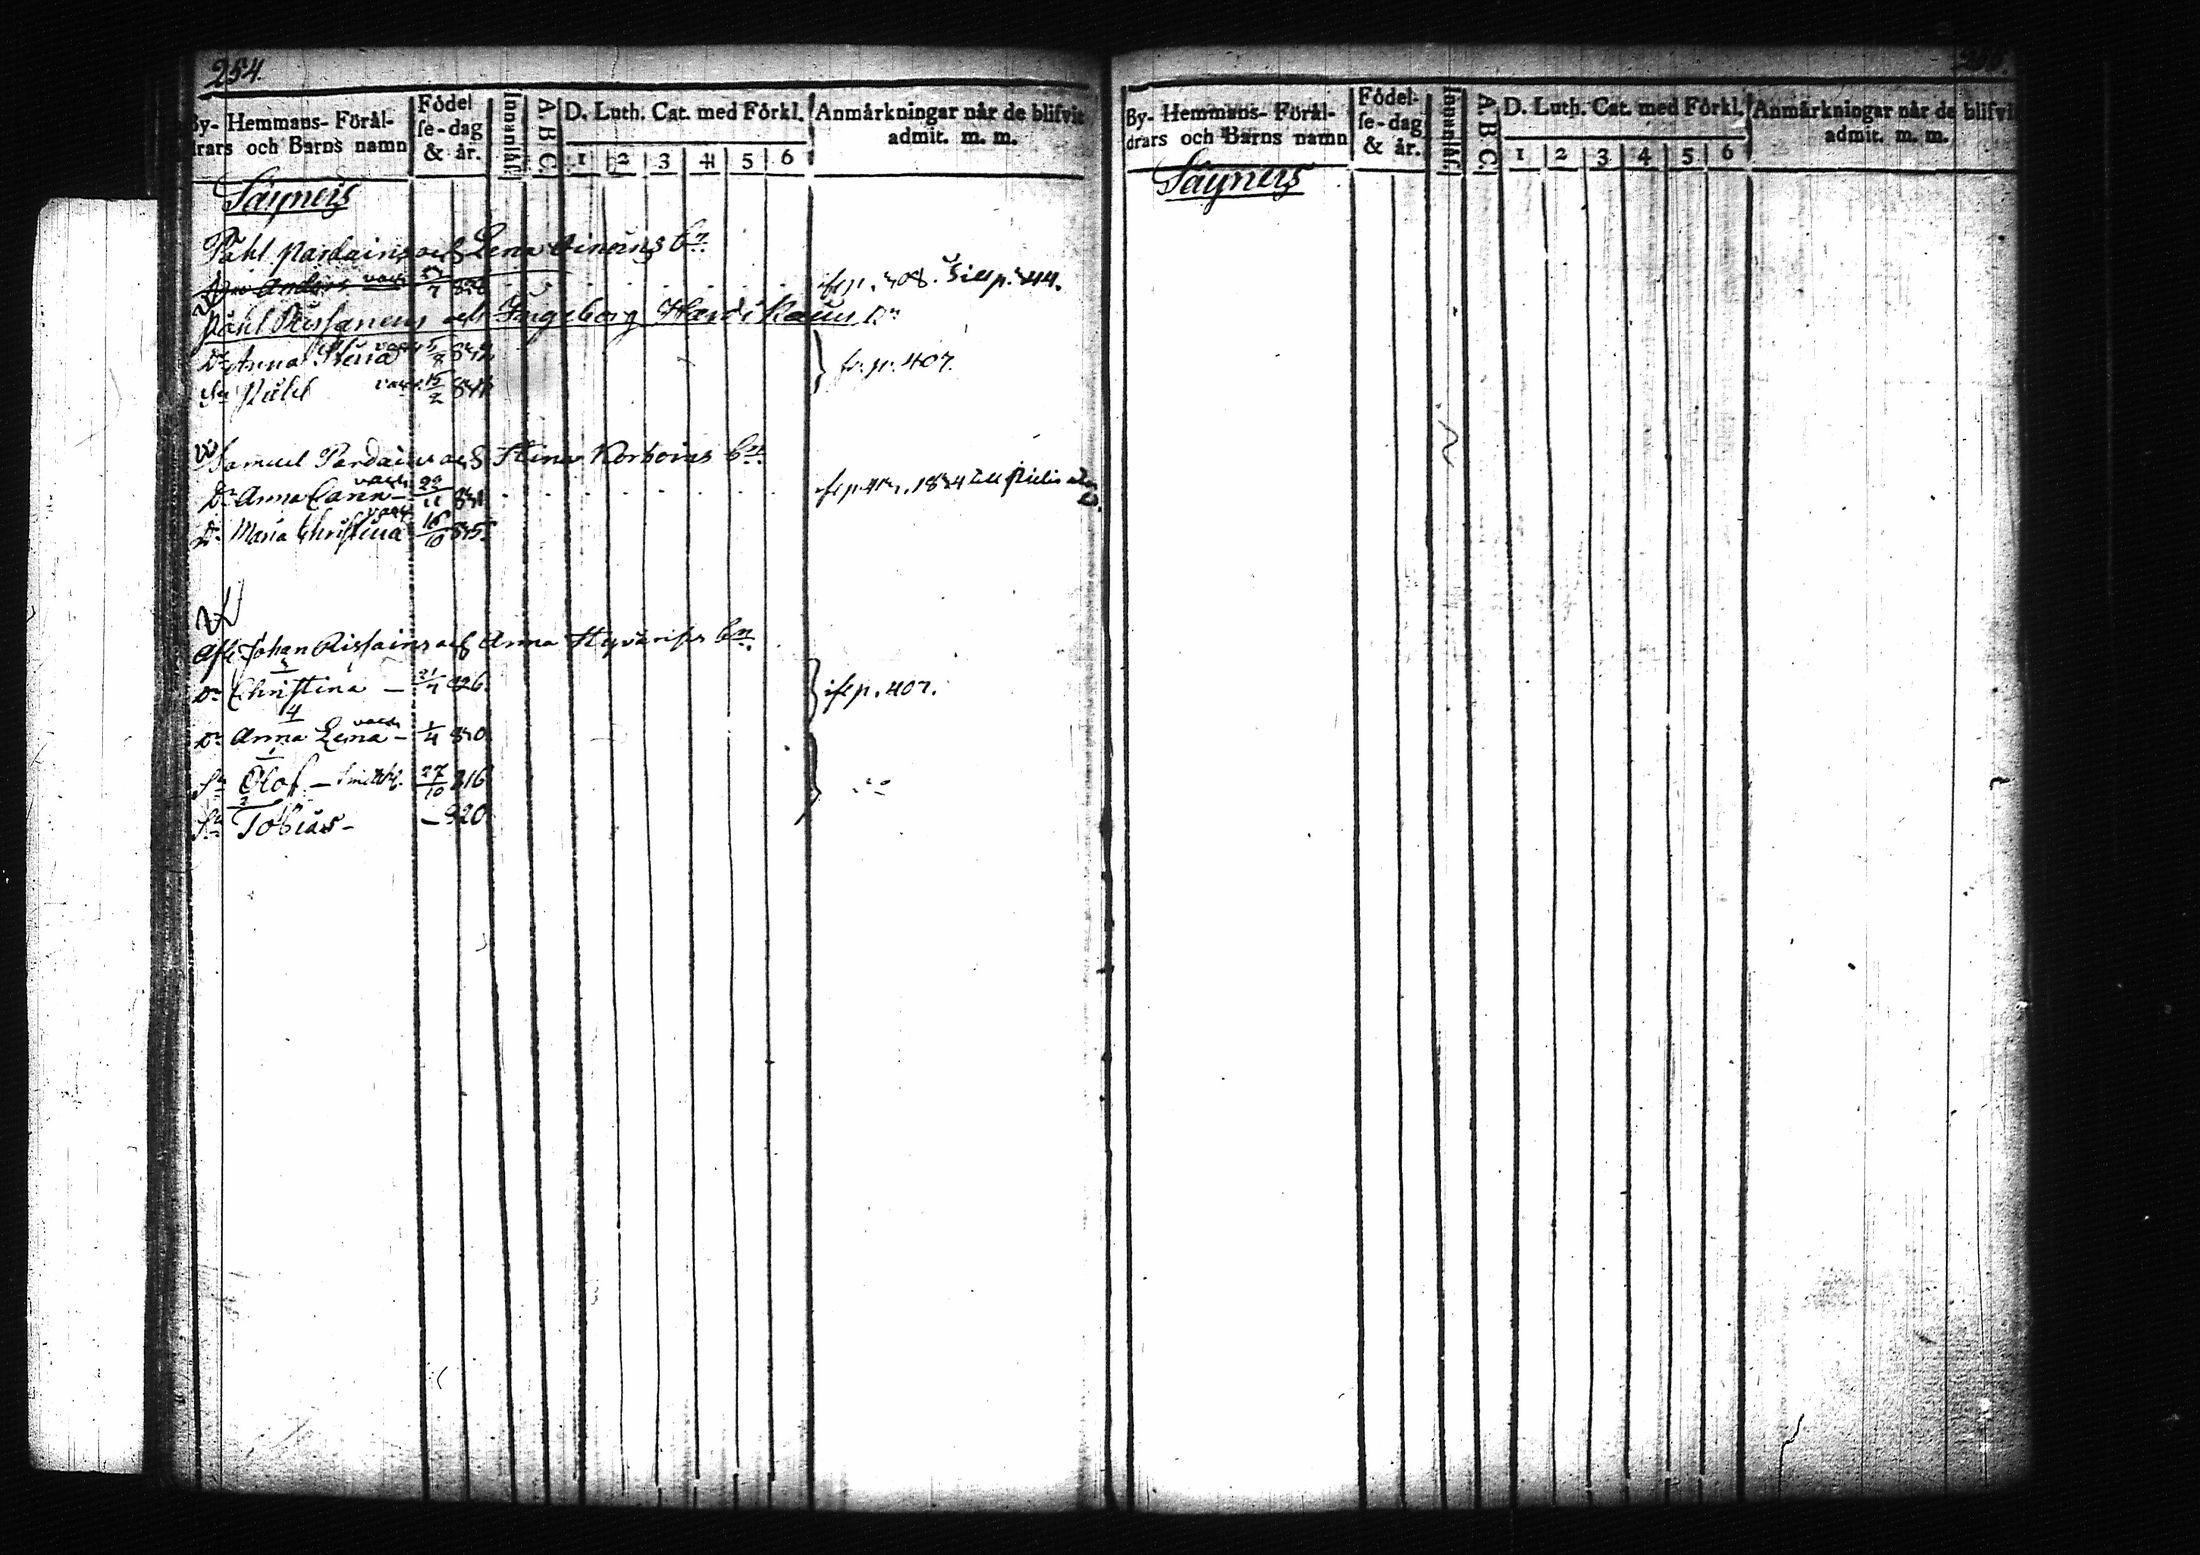 254.
By- Hemmans- Förål-
drars och Barns namn
Födel
se-dag
& år.
Innanläs.
A. B. C.
D. Luth. Cat. med Förkl.
1 2 3 4 5 6
Anmårkningar når de blifvit
admit. m. m.
Säyneis
Påhl Pardains och Lena bn
Anders vacc. 828. se p. 408. Till p. 244.
Påhl Rissanens och Ingeborg
Dr Anna Stina vacc. 5/8 842.
Sn Påhl vacc. 15/2 841
fr. p. 407.
Samuel Pardains och Stina Korhoins bn
Dr Anna Carin vacc. 23/11 831 1834 till
Dr Maria Christina vacc. 16/10 835.
Afl. Johan Rissains och Anna Hyvärises bn
3
Dr Christina — 21/7 826. se p. 407.
4
Dr Anna Lena vacc. – 1/4 830
1
Sn Olof — 27/10 816
2
Sn Tobias – – 820
By- Hemmans- Förål-
drars och Barns namn
Födel-
se-dag
& år.
Innanläs.
A. B. C.
D. Luth. Cat. med Förkl.
1 2 3 4 5 6
Anmårkningar når de blifvit
admit. m. m.
Säyneis